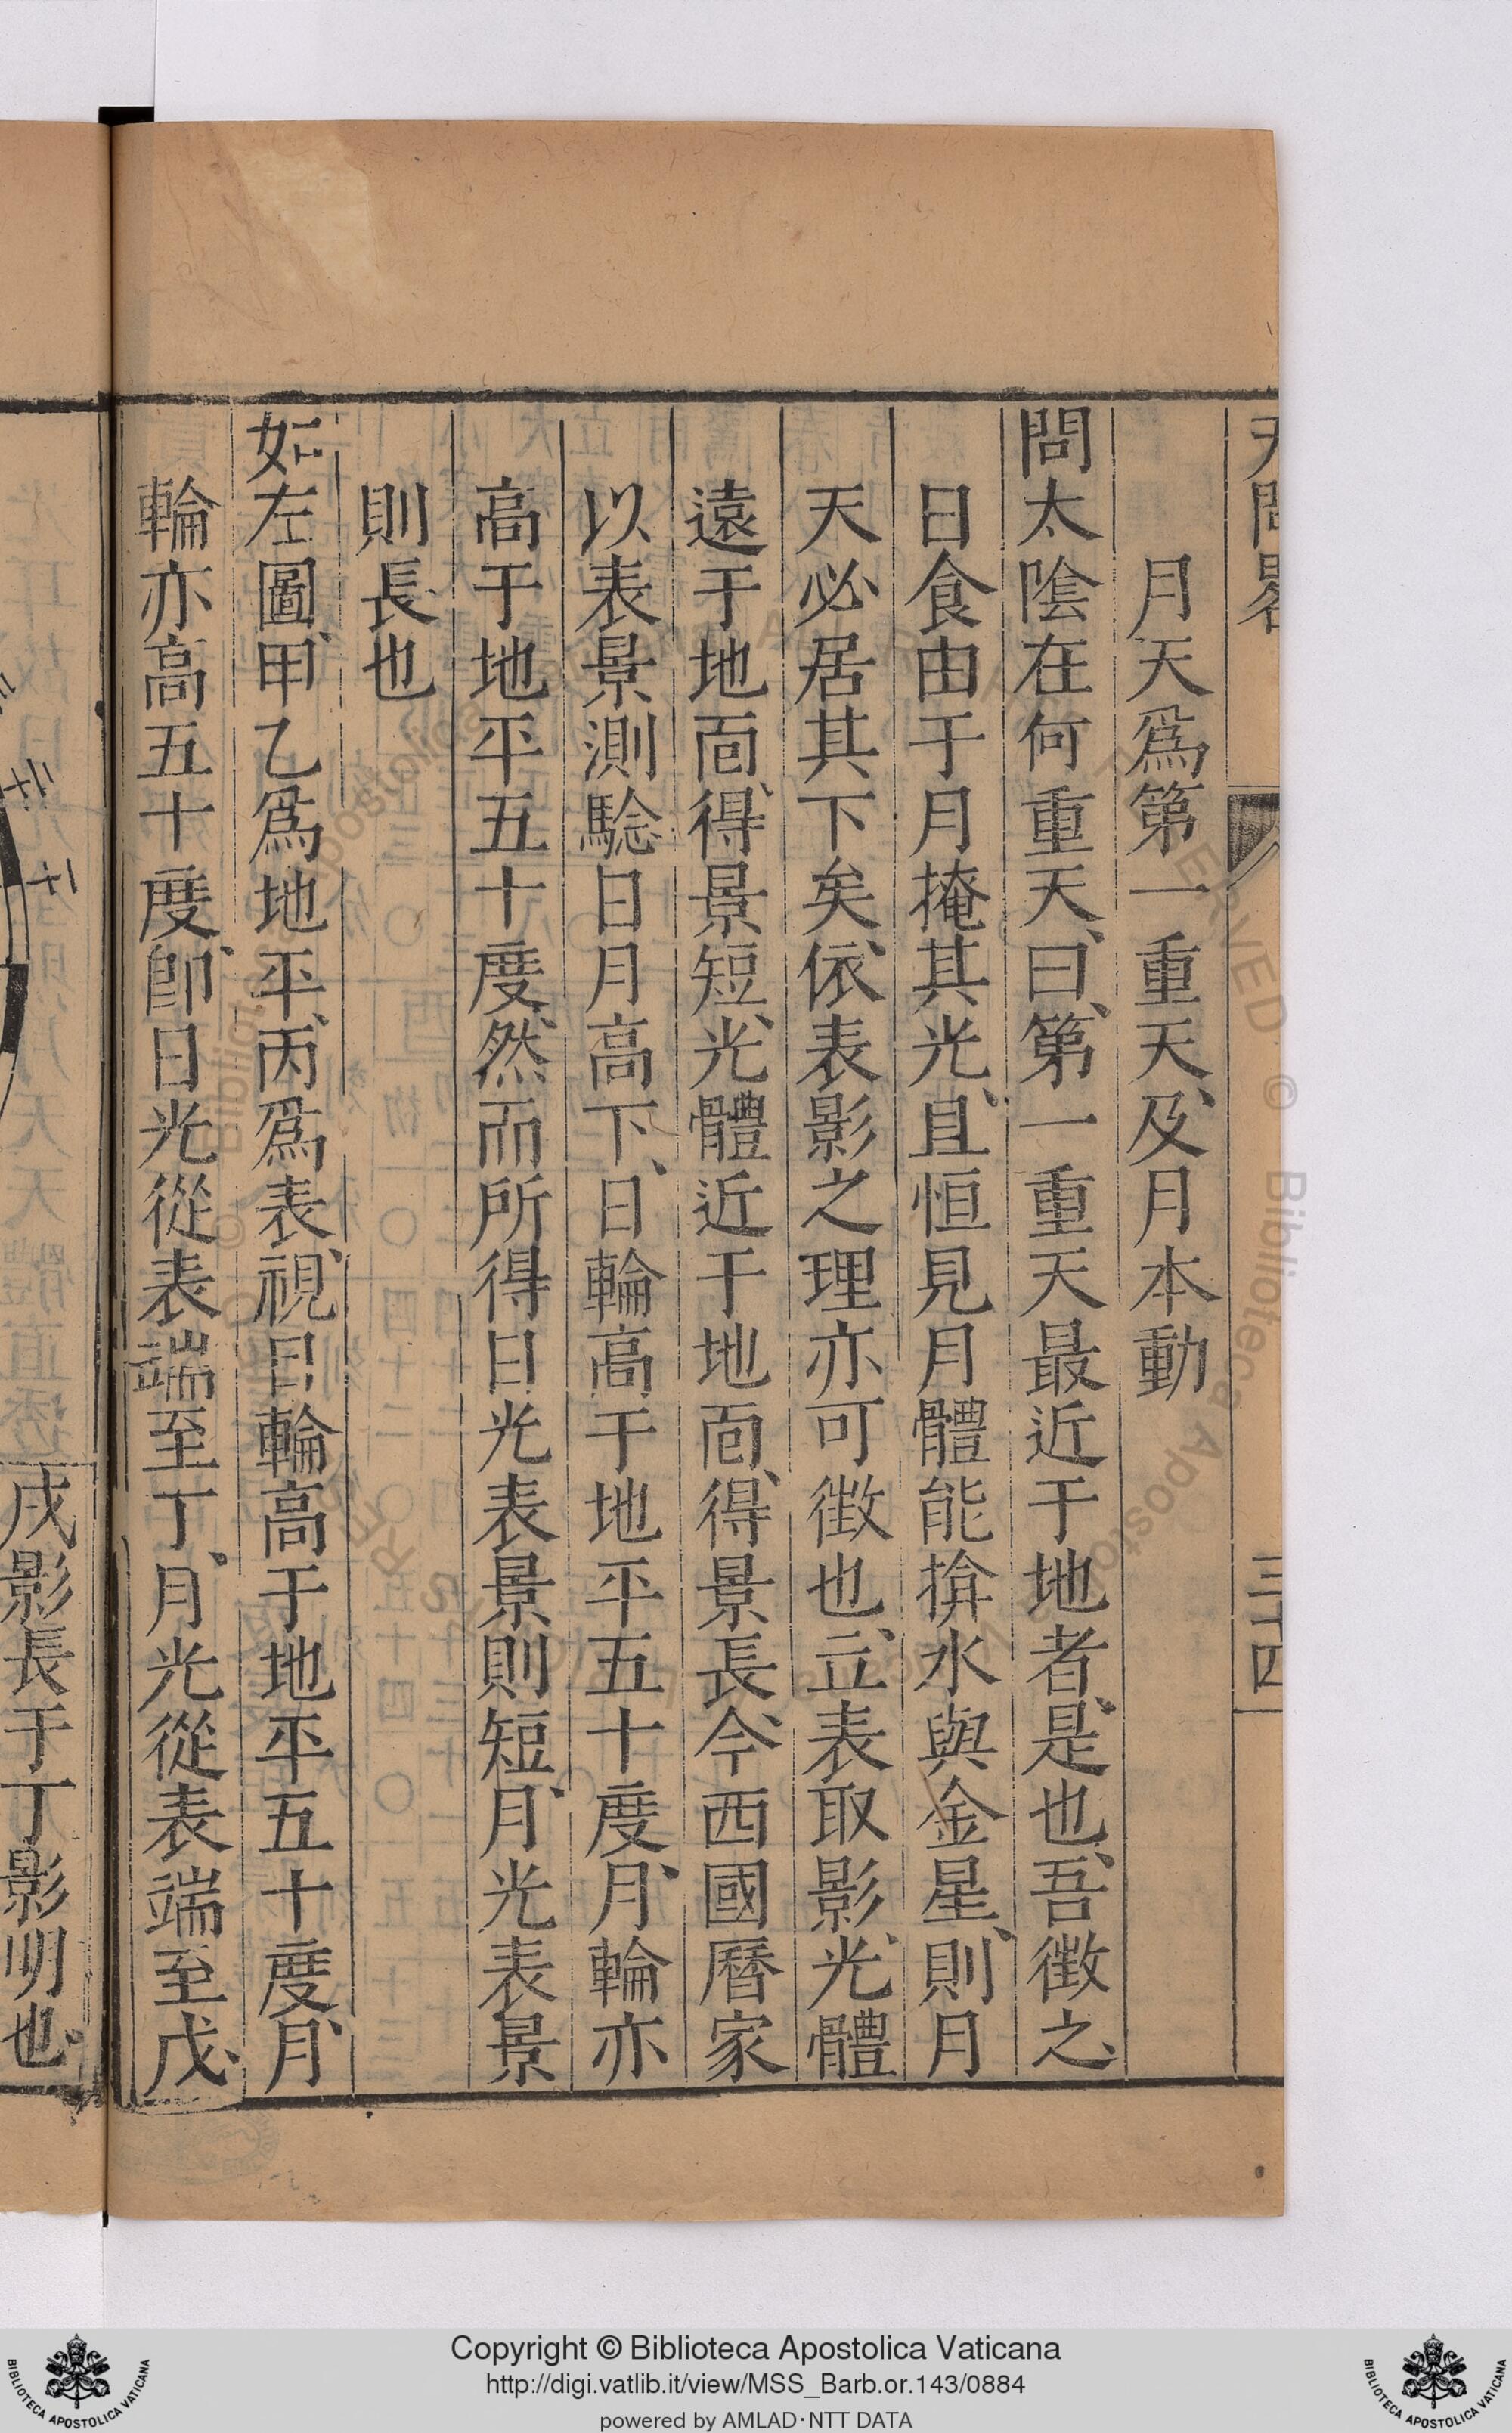 天問畧
三十四
月天爲第一重天、及月本動
問太陰在何重天、曰、第一重天最近于地者、是也、吾徵之、
日食由于月掩其光、且恒見月體能揜水與金星、則月
天必居其下矣、依表影之理亦可徵也、立表取影、光體
遠于地面、得景短、光體近于地面、得景長、今西國曆家
以表景測騐日月高下、日輪高于地平五十度、月輪亦
高于地平五十度、然而所得日光表景則短、月光表景
則長也
如左圖、甲乙爲地平、丙爲表、視日輪高于地平五十度、月
輪亦高五十度、卽日光從表端至丁、月光從表端至戊、
戊影長于丁影明也。
Copyright © Biblioteca Apostolica Vaticana
http://digi.vatlib.it/view/MSS_Barb.or.143/0884
powered by AMLAD·NTT DATA
BIBLIOTECA APOSTOLICA VATICANA
BIBLIOTECA APOSTOLICA VATICANA